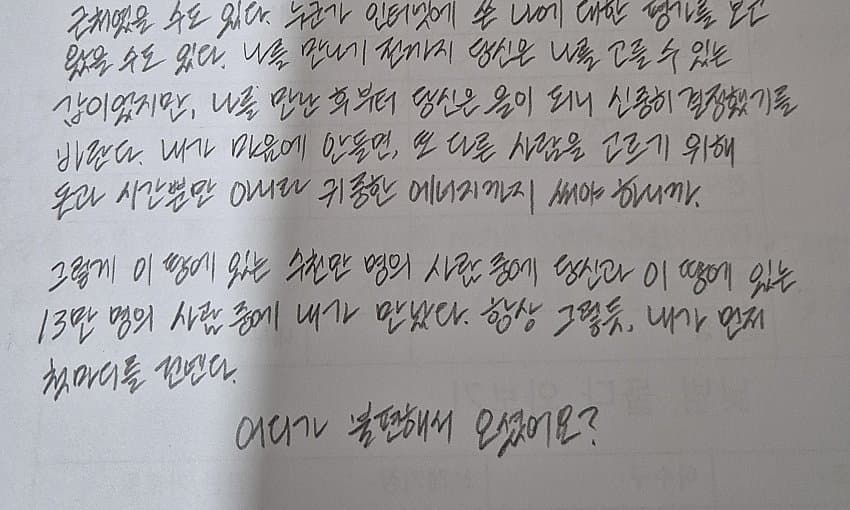 근처였을 수도 있다. 누군가 인터넷에 쓴 나에 대한 평가를 보고
왔을 수도 있다. 나를 만나기 전까지 당신은 나를 고를 수 있는
갑이었지만, 나를 만난 후부터 당신은 을이 되니 신중히 결정했기를
바란다. 내가 마음에 안들면, 또 다른 사람을 고르기 위해
돈과 시간뿐만 아니라 귀중한 에너지까지 써야 하니까.
그렇게 이 땅에 있는 수천만 명의 사람 중에 당신과 이 땅에 있는
13만 명의 사람 중에 내가 만났다. 항상 그렇듯, 내가 먼저
첫마디를 건넨다.
어디가 불편해서 오셨어요?